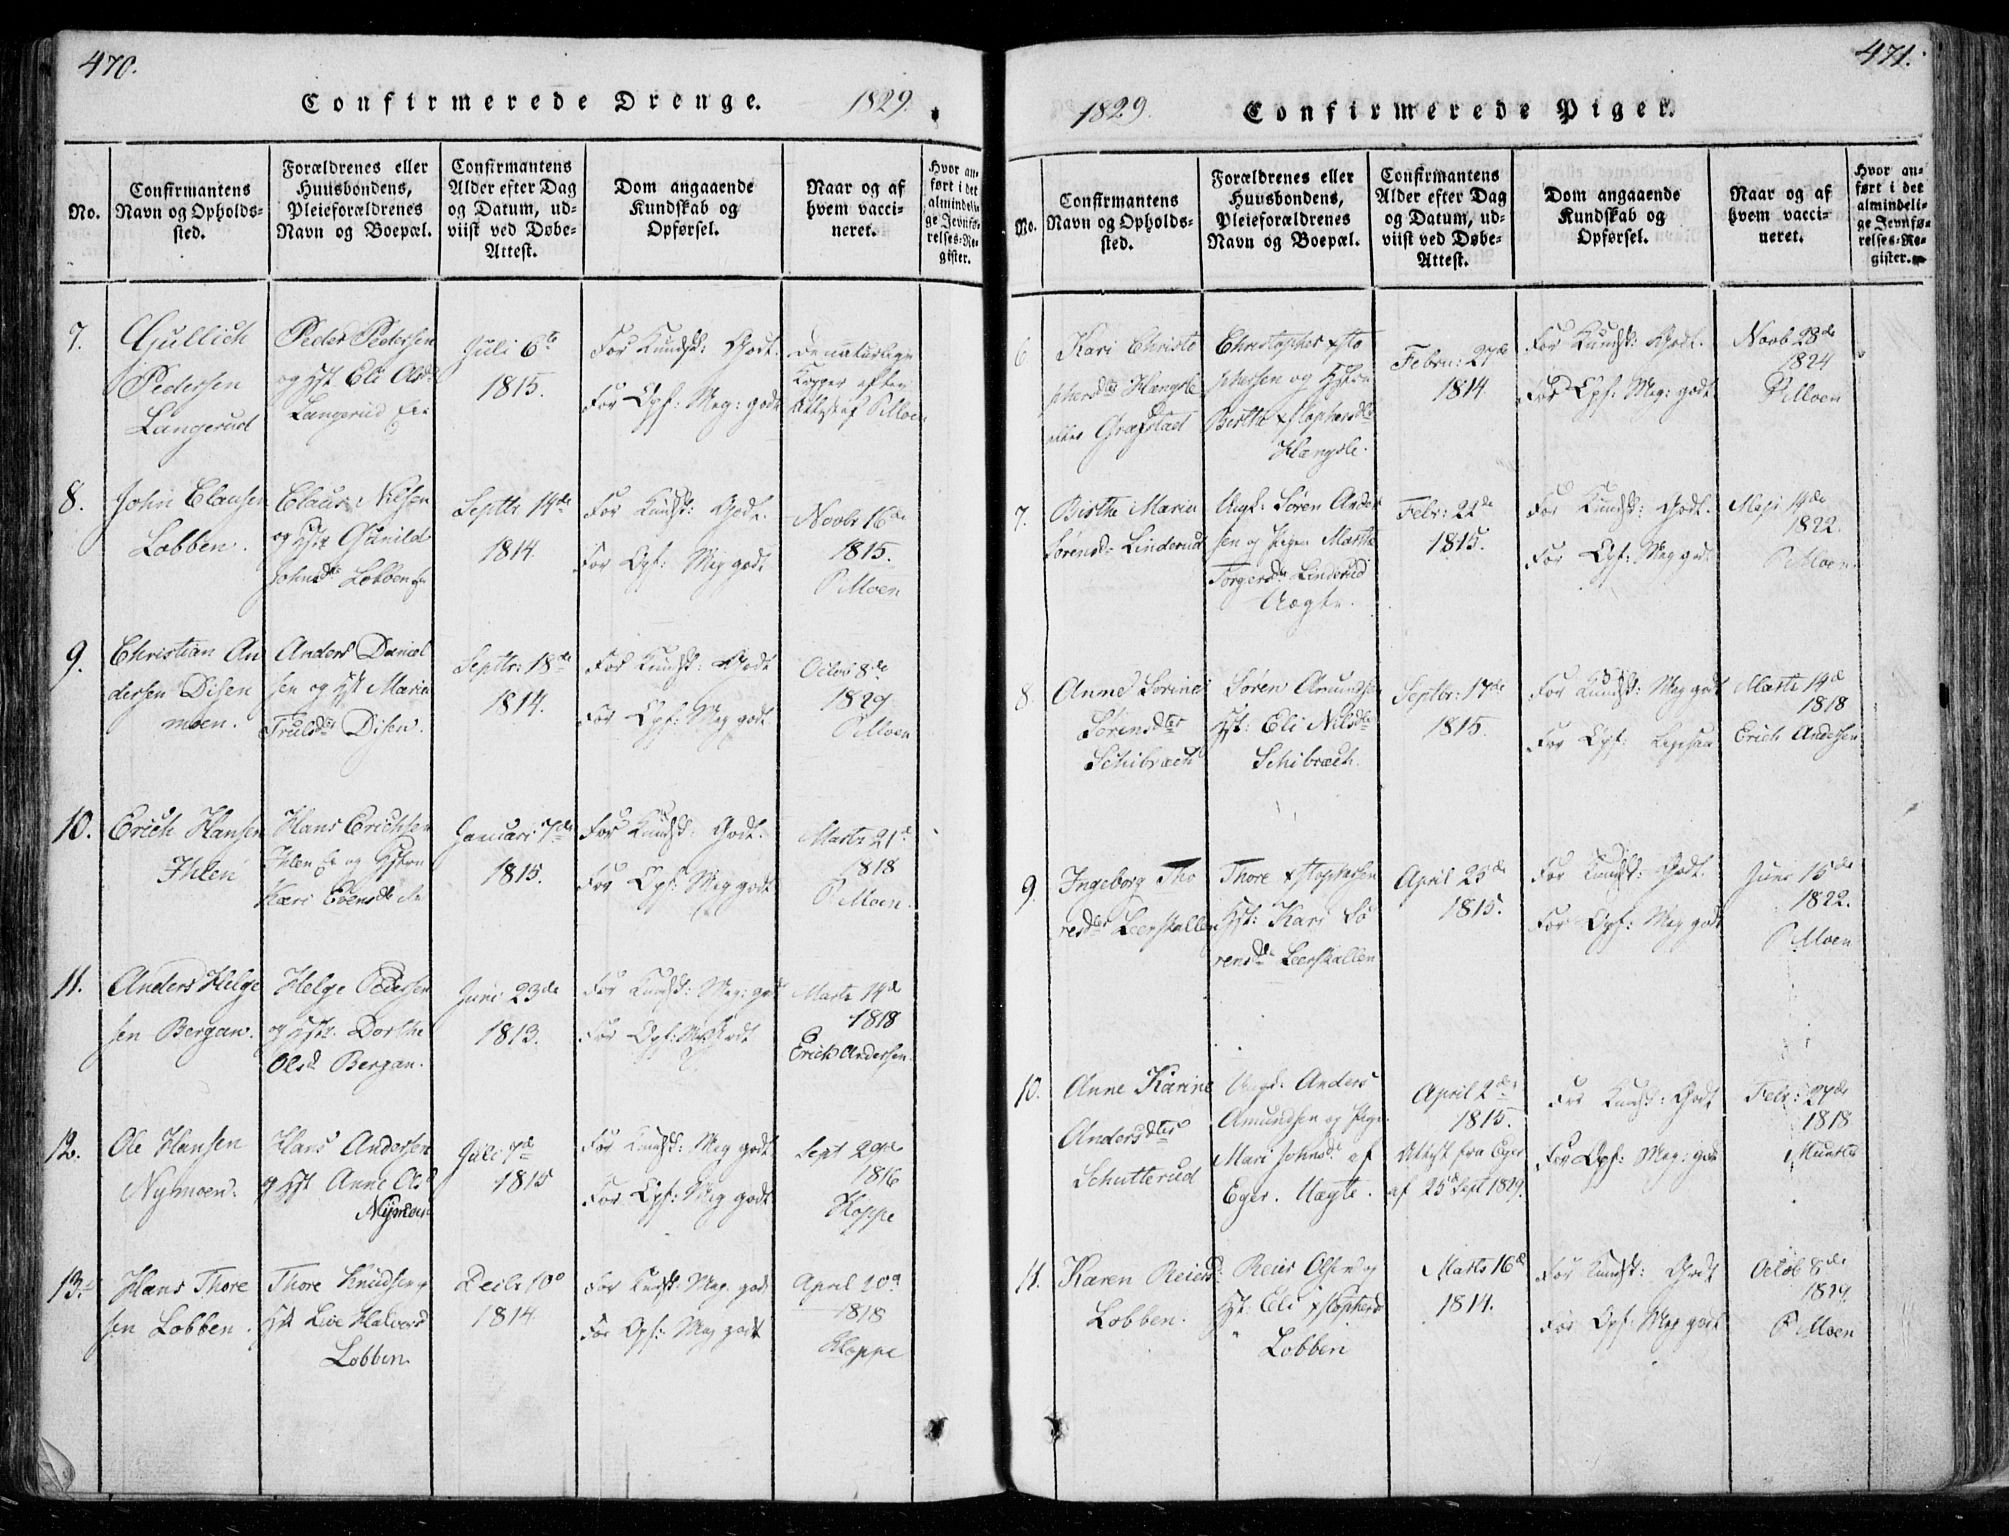 470.
Confirmerede Drenge. 1829.
No.
Confirmantens
Navn og Opholds-
sted.
Forældrenes eller
Huusbondens,
Pleieforældrenes
Navn og Boepæl.
Confirmantens
Alder efter Dag
og Datum, ud-
viist ved Døbe-
Attest.
Dom angaaende
Kundskab og
Opførsel.
Naar og af
hvem vacci-
neret.
Hvor an-
ført i det
almindeli-
ge Jevnfø-
relses-Re-
gister.
7.
Gullich
Pedersen
Langerud
Peder Pedersen
og Hst Eli Olsd
Langerud
Juli 6te
1815.
For Kundsk: Godt.
For Opf: Meg: godt
De naturlige
Kopper efter
Attest af P Moen
8.
John Clausen
Lobben.
Claus Nilsen
og Hst Gunild
Johnsd Lobben
Septbr 14de
1814
For Kundsk: Godt.
For Opf: Meg godt
Novbr 16de
1815.
P Moen
9.
Christian An
dersen Disen
moen.
Anders Daniel
sen og Hst Maria
Trulsd Disen
Septbr: 18de
1814.
For Kundsk: Godt
For Opf: Meg godt
Octob 8de
1829
P Moen
10.
Erich Hansen
Ihlen
Hans Erichsen
Ihlen Ei og Hstru
Kari Evensd
Januari 7de
1815.
For Kundsk: Godt.
For Opf: Meg godt
Marts 21de
1818
P Moen.
11.
Anders Helge
sen Bergan.
Helge Pedersen
og Hst. Dorthe
Olsd Bergan.
Juni 23de
1813.
For Kundsk: Meg: godt
For Opf: Meg godt
Marts 14de
1818
Erich Andersen.
12.
Ole Hansen
Nymoen.
Hans Andersen
og Hst Anne Olsd
Nymoen
Juli 7de
1815
For Kundsk: Meg godt
For Opf: Meg godt
Sept 29de
1816
Hoppe
13.
Hans Thore
sen Lobben.
Thore Knudsen og
Hst Live Halvorsd
Lobben.
Decbr 10de
1814
For Kundsk: Meg. godt
For Opf: Meg godt
April
1818
Hoppe
471.
1829. Confirmerede Piger.
No.
Confirmantens
Navn og Opholds-
sted.
Forældrenes eller
Huusbondens,
Pleieforældrenes
Navn og Boepæl.
Confirmantens
Alder efter Dag
og Datum, ud-
viist ved Døbe-
Attest.
Dom angaaende
Kundskab og
Opførsel.
Naar og af
hvem vacci-
neret.
Hvor an-
ført i det
almindeli-
ge Jevnfø-
relses-Re-
gister.
6
Kari Christo
phersdtr Hængsle
eller Grafstad
Christopher Xsto
phersen og Hstru
Birthe Xstophersdtr
Hængsle.
Febru: 27de
1814.
For Kundsk: Godt.
For Opf: Meg: godt
Novb 28de
1824
P Moen
7.
Birthe Maria
Sørensd Linderud
Ungk. Søren Ander
sen og Pigen Marthe
Torgersd Linderud
Uægte.
Febr: 22de
1815.
For Kundsk: Godt.
For Opf: Meg godt
Maji 14de
1822.
P Moen
8.
Anne Sørine
Sørensdter
Schibræch
Søren Amundsen
Hst: Eli Nilsd
Schibræch.
Septbr: 17de
1815.
For Kundsk: Meg godt
For Opf:
Marts 14de
1818
Erich Andersen
9.
Ingeborg Tho
resdtr Leerskallen
Thore Xstophersen
Hst: Kari Sø
rensd Leerskallen
April 25de
1815.
For Kundsk: Godt.
For Opf: Meg godt
Juni 15de
1822.
P Moen
10.
Anne Karine
Andersdter
Schutterud
Ungk: Anders
Amundsen og Pige
Mari Johnsd af
Eger. Uægte.
April 2de
1815.
Attest fra Eger
af 25de Sept 1829.
For Kundsk: Godt
For Opf: Meg: godt
Febr: 27de
1818
Munster
11.
Karen Reiersd:
Lobben.
Reier Olsen og
Hst: Eli Xstophersd
Lobben
Marts 16de
1814.
For Kundsk: Godt
For Opf: Meg godt
Octob 8de
1829.
P Moen